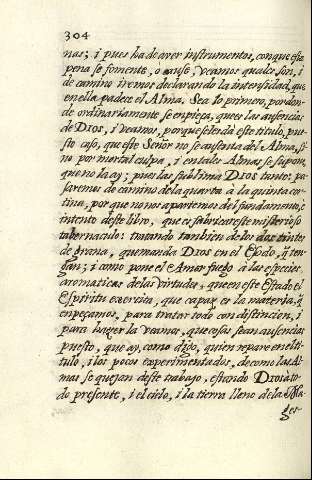 304
nas; i pues ha de aver instrumentos, con que esta
pena se fomente, o cause; veamos quales son, i
de camino iremos declarando la intensidad, que
en ella padeze el Alma. Sea lo primero, por don-
de ordinariamente se empieça, que es las ausencias
de DIOS, i veamos, porque se le da este titulo, pue-
sto caso, que este Señor no se ausenta del Alma, si-
no por mortal culpa, i en tales Almas se supone,
que no la ay; pues las sublima DIOS tanto: pa-
saremos de camino de la quarta à la quinta cor-
tina, por que no nos apartemos del fundamento, è
intento deste libro, que es fabricar este misterioso
tabernaculo: tratando tambien de los dos tintes
de grana, que manda DIOS en el Exodo, q̃ ten-
gan; i como pone el Amor fuego à las especies
aromaticas de las virtudes, que en este Estado el
Espiritu exercita, que capaz es la materia, q̃
enpeçamos, para tratar todo con distincion, i
para hazer la vamos, que cosas sean ausencias
puesto, que ay, como digo, quien repare en el ti-
tulo, i los pocos experimentados, de como las Al-
mas se quejan deste trabajo, estando DIOS à to-
do presente, i el cielo, i la tierra lleno de la Ma-
ges-